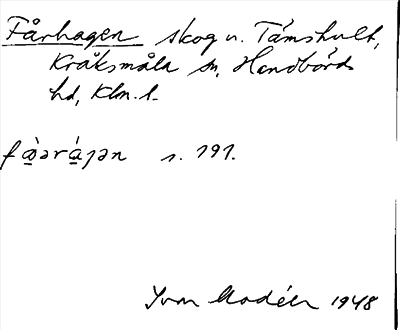 Fårhagen skog u. Támshult,
Kråksmåla sn, Handbörds
hd, Klm. l.
s. 191.
Ivar Modéer 1948